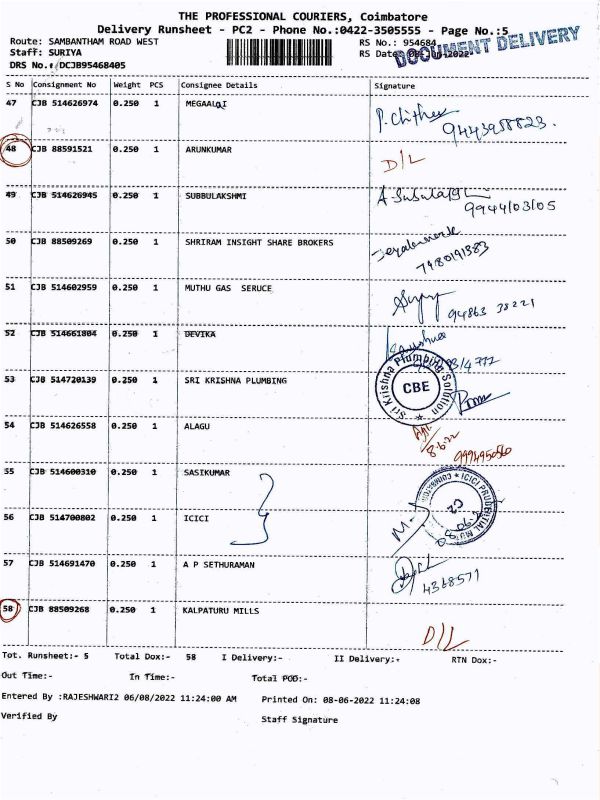 THE PROFESSIONAL COURIERS, Coimbatore
Delivery Runsheet - PC2 - Phone No.:0422-3505555 - Page No.:5
Route: SAMBANTHAM ROAD WEST RS No.: 954684
Staff: SURIYA RS Date: 08-Jun-2022
DRS No.: DCJB95468405 DOCUMENT DELIVERY
S No Consignment No Weight PCS Consignee Details Signature
47 CJB 514626974 0.250 1 MEGAALAI P. Chithra
9443958823.
48 CJB 88591521 0.250 1 ARUNKUMAR D/L
49 CJB 514626945 0.250 1 SUBBULAKSHMI
9944103105
50 CJB 88509269 0.250 1 SHRIRAM INSIGHT SHARE BROKERS
7980191383
51 CJB 514602959 0.250 1 MUTHU GAS SERUCE
94863 38221
52 CJB 514661804 0.250 1 DEVIKA
53 CJB 514720139 0.250 1 SRI KRISHNA PLUMBING
Sri Krishna Plumbing Solution
CBE
54 CJB 514626558 0.250 1 ALAGU
8.6.22
55 CJB 514600310 0.250 1 SASIKUMAR
ICICI PRUDENTIAL
56 CJB 514700802 0.250 1 ICICI
57 CJB 514691470 0.250 1 A P SETHURAMAN
4368571
58 CJB 88509268 0.250 1 KALPATURU MILLS D/L
Tot. Runsheet:- 5 Total Dox:- 58 I Delivery:- II Delivery:- RTN Dox:-
Out Time:- In Time:- Total POD:-
Entered By :RAJESHWARI2 06/08/2022 11:24:00 AM Printed On: 08-06-2022 11:24:08
Verified By Staff Signature